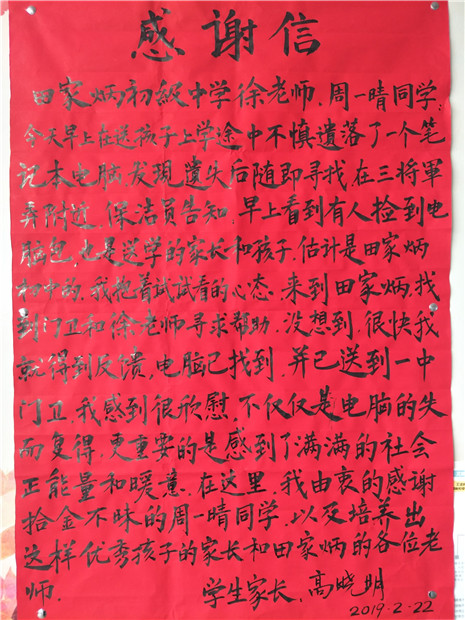 感谢信
田家炳初級中学徐老师.周一晴同学:
今天早上在送孩子上学途中不慎遗落了一个笔
记本电脑,发現遗失后随即寻找,在三将軍
弄附近,保洁员告知,早上看到有人捡到电
脑包,也是送学的家长和孩子.估计是田家炳
初中的,我抱着试试看的心态.来到田家炳,找
到门卫和徐老师寻求帮助,没想到,很快我
就得到反馈,电脑已找到,并已送到一中
门卫,我感到很欣慰,不仅仅是电脑的失
而复得,更重要的是感到了满满的社会
正能量和暖意,在这里,我由衷的感谢
拾金不昧的周一晴同学,以及培养出
这样优秀孩子的家长和田家炳的各位老
师.
学生家长,高晓明
2019-2-22